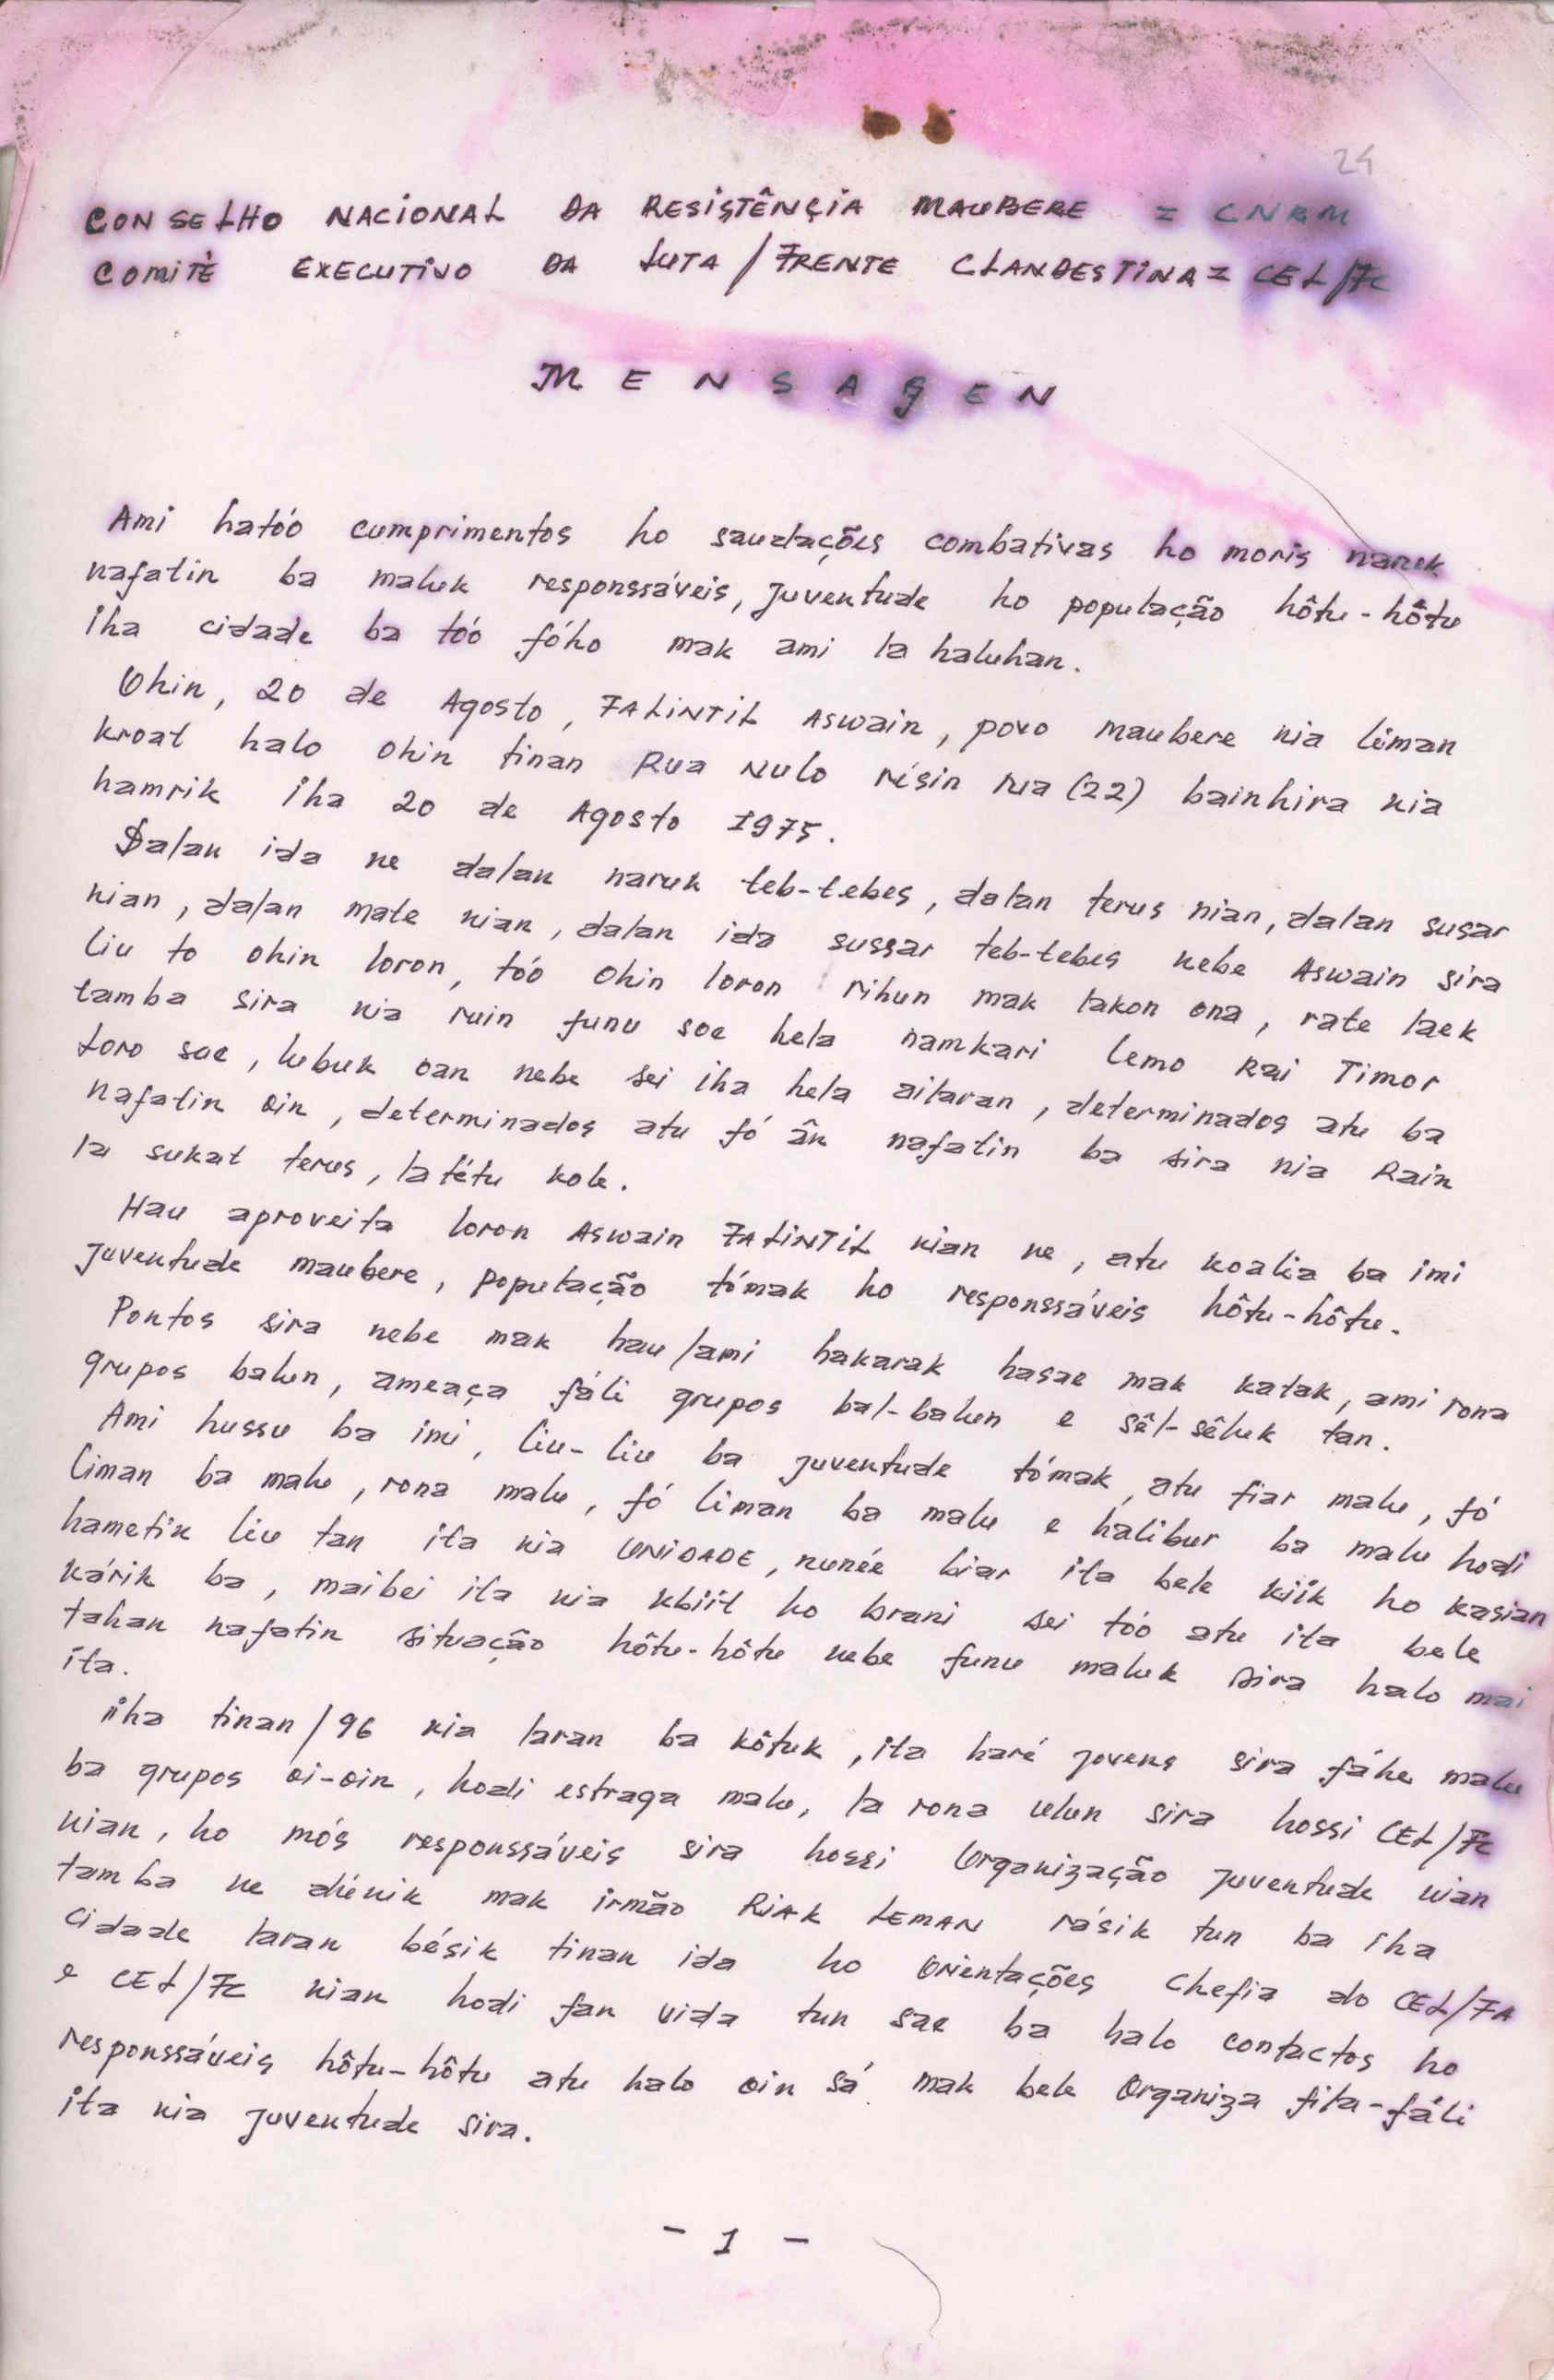 24
CONSELHO NACIONAL DA RESISTÊNÇIA MAUBERE = CNRM
COMITÈ EXECUTIVO DA LUTA / FRENTE CLANDESTINA = CEL/FC
MENSAGEN
Ami hatóo cumprimentos ho saudações combativas ho moris naruk
nafatin ba maluk responssáveis, juventude ho população hôtu-hôtu
iha cidade ba tóo fóho mak ami la haluhan.
Ohin, 20 de Agosto, FALiNTiL Aswain, povo maubere nia liman
kroat halo ohin tinan Rua Nulo résin rua (22) bainhira nia
hamrik iha 20 de Agosto 1975.
Dalan ida ne dalan naruk teb-tebes, dalan terus nian, dalan susar
nian, dalan mate nian, dalan ida sussar teb-tebes nebe Aswain sira
liu to ohin loron, tóo ohin loron rihun mak lakon ona, rate laek
tamba sira nia ruin funu soe hela namkari lemo Rai Timor
Loro sae, lubuk oan nebe sei iha hela ailaran, determinados atu ba
nafatin oin, determinados atu fó ân nafatin ba sira nia Rain
la sukat terus, la tétu kole.
Hau aproveita loron Aswain FALiNTiL nian ne, atu koalia ba imi
juventude maubere, população tómak ho responssáveis hôtu-hôtu.
Pontos sira nebe mak hau/ami hakarak hasae mak katak, ami rona
grupos balun, ameaça fáli grupos bal-balun e sêl-sêluk tan.
Ami hussu ba imi, liu-liu ba juventude tómak, atu fiar malu, fó
liman ba malu, rona malu, fó liman ba malu e halibur ba malu hodi
hametin liu tan ita nia UNiDADE, nunée biar ita bele kiik ho kasian
kárik ba, maibei ita nia kbiit ho brani sei tóo atu ita bele
tahan nafatin situação hôtu-hôtu nebe funu maluk sira halo mai
ita.
iha tinan/96 nia laran ba kôtuk, ita haré jovens sira fáhe malu
ba grupos oi-oin, hodi estraga malu, la rona ulun sira hossi CEL/FC
nian, ho mós responssáveis sira hossi Organização juventude nian
tamba ne diénik mak irmão RiAK LEMAN rásik tun ba iha
cidade laran bésik tinan ida ho Orientações chefia do CEL/FA
e CEL/FC nian hodi fan vida tun sae ba halo contactos ho
responssáveis hôtu-hôtu atu halo oin sá mak bele Organiza fila-fáli
ita nia juventude sira.
- 1 -